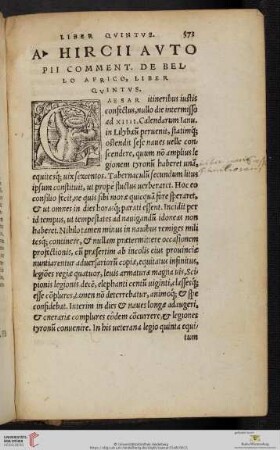 LIBER QVINTVS. 573
A▸ HIRCII AVTO
PII COMMENT. DE BEL
LO AFRICO, LIBER
QVINTVS.
CAESAR itineribus iustis
confectus, nullo die intermisso
ad XIIII. Calendarum Ianu.
in Lilybæū peruenit, statimq́;
ostendit sese naues uelle con
scendere, quum nō amplius le
gionem tyronū haberet unā,
equitesq́; uix sexcentos. Tabernaculū secundum litus
ipsum constituit, ut prope fluctus uerberaret. Hoc eo
consilio fecit, ne quis sibi moræ quicquā fore speraret,
& ut omnes in dies horasq́; parati essent. Incidit per
id tempus, ut tempestates ad nauigandū idoneas non
haberet. Nihilo tamen minus in nauibus remiges mili
tesq́; continere, & nullam prætermittere occasionem
profectionis, cū præsertim ab incolis eius prouinciæ
nuntiarentur aduersariorū copiæ, equitatus infinitus,
legiões regiæ quatuor, leuis armaturæ magna uis, Scipi
pionis legiones decē, elephanti centū uiginti, classesq́;
esse cōplures, tamen nō deterrebatur, animoq́; & spe
confidebat. Interim in dies & naues longæ adaugeri,
& onerariæ complures eōdem cōcurrere, & legiones
tyronū conuenire. In his ueterana legio quinta equi
tum
© Universitätsbibliothek Heidelberg